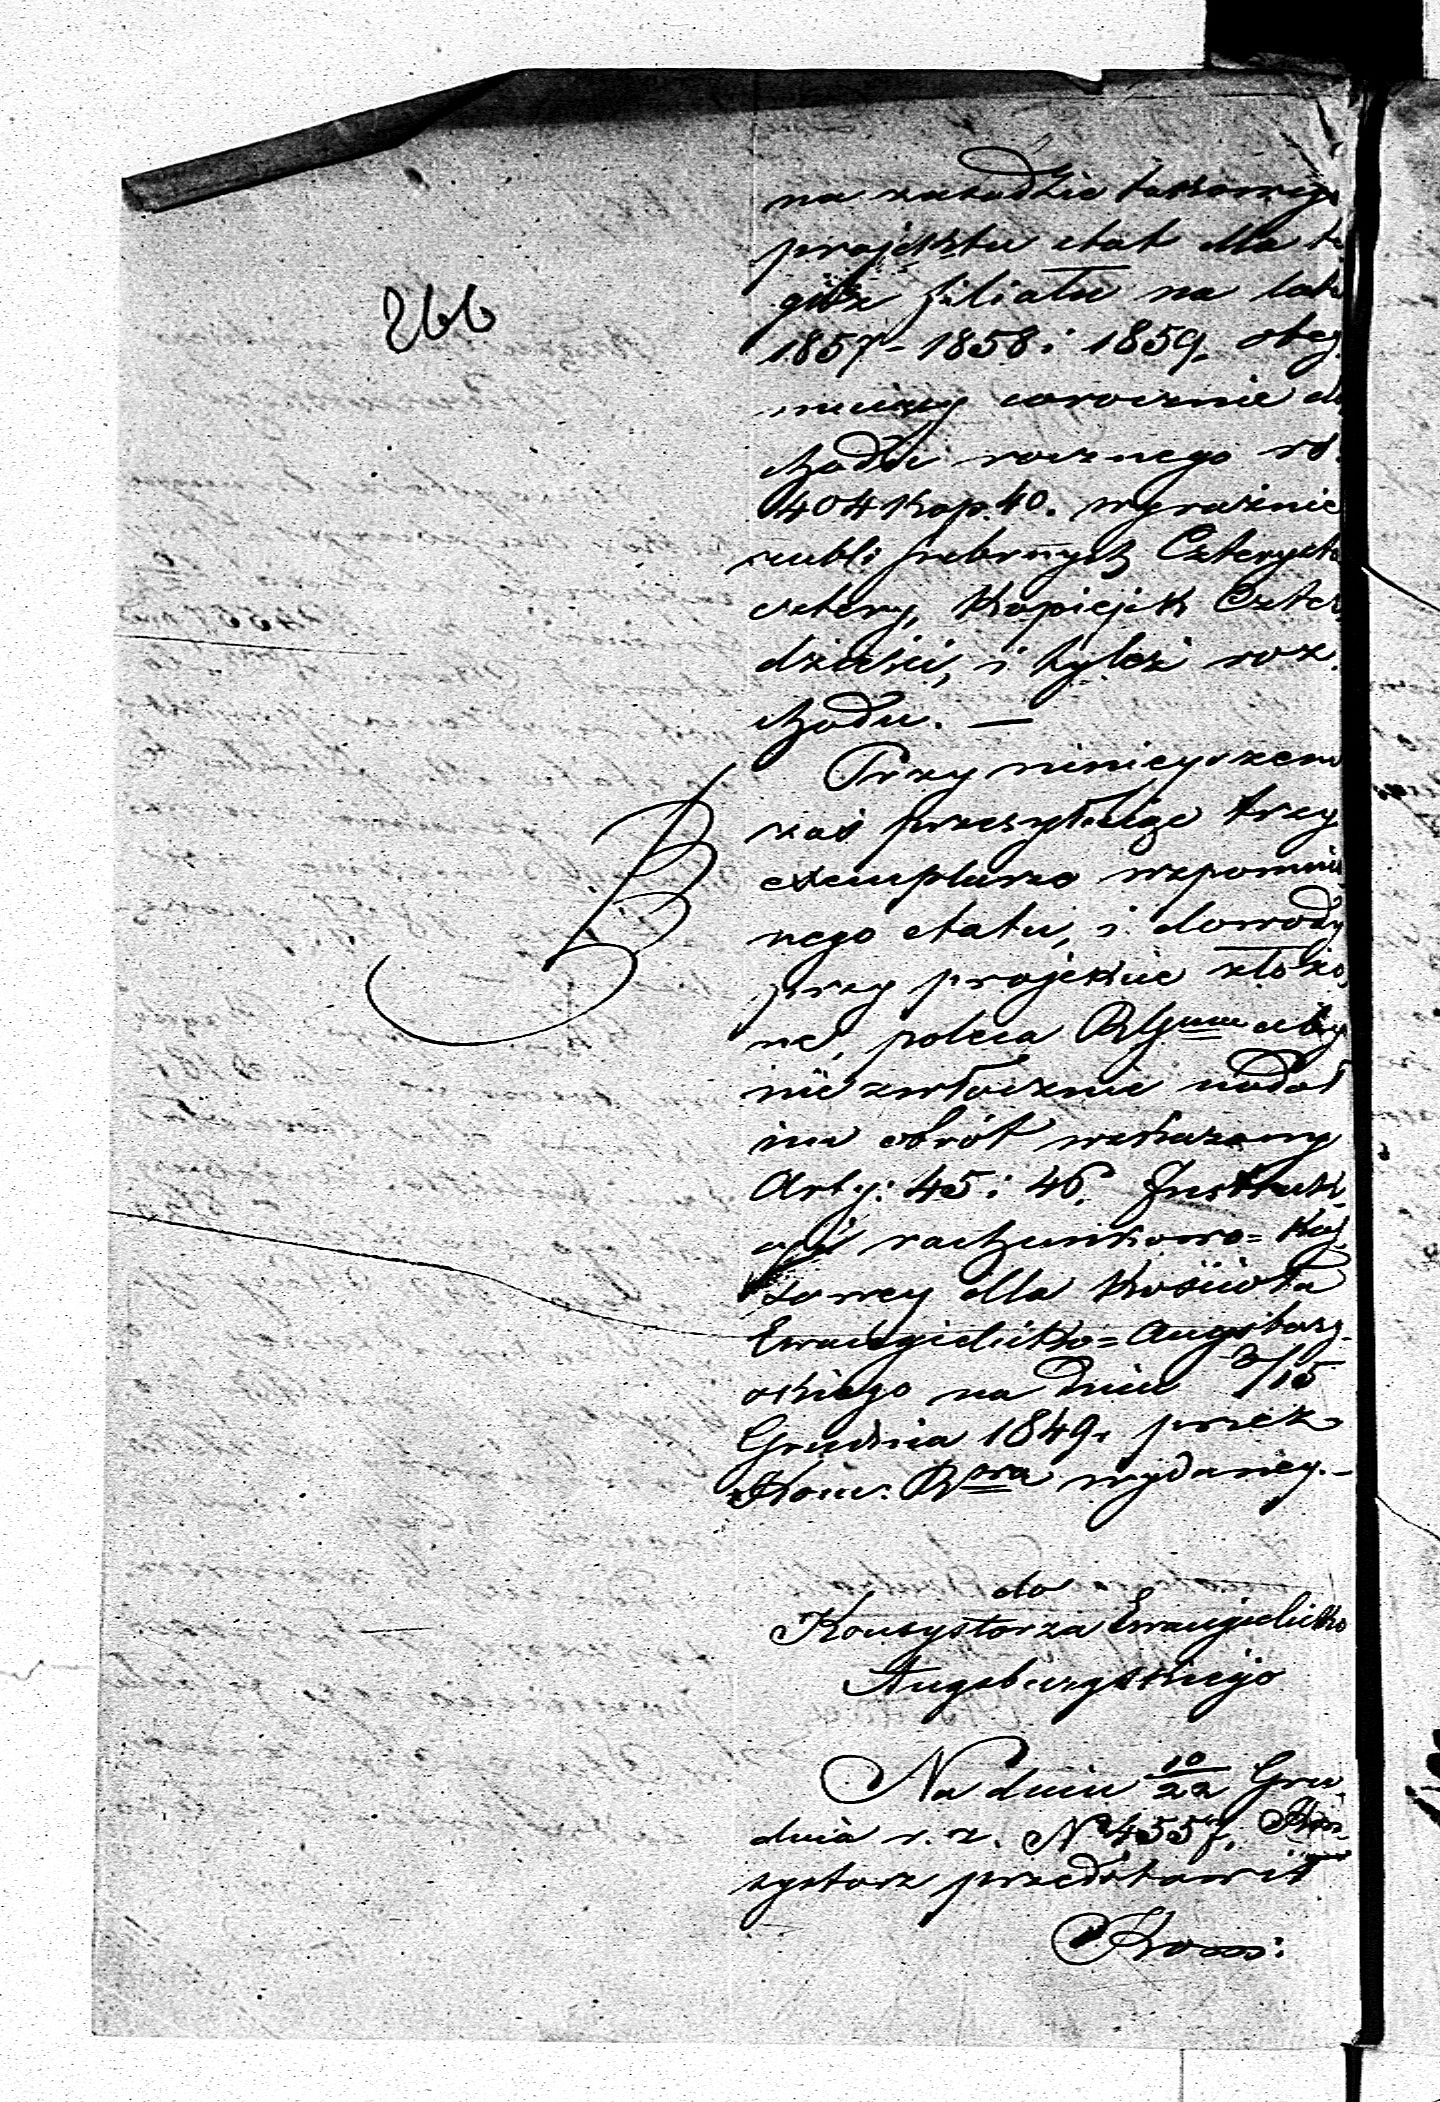 266
na zasadzie takowego
projektu etat dla te
goż filiału na lata
1857 - 1858 i 1859, obej
mujący corocznie do
chodu rocznego rs.
404 kop. 40. wyraźnie
rubli srebrnych Czterysta
cztery, kopiejek Czter
dzieści, i tyleż roz
chodu. —
Przy niniejszem
zaś przesyłając trzy
exemplarze wspomnio
nego etatu, i dowody
przy projekcie złożo
ne, poleca aby
niezwłocznie nadał
im obrót wskazany
Arty: 45 i 46. Instruk
cyi rachunkowo= Kas
sowey dla Kościoła
Ewangielicko= Augsburg
skiego na dniu 3/15
Grudnia 1849. przez
Kom: R wydaney. —
do
Konsystorza Ewangielicko
Augsburgskiego
Na dniu 10/22 Gru
dnia r. z. N 4557, Kon
systorz przedstawił
Kom: